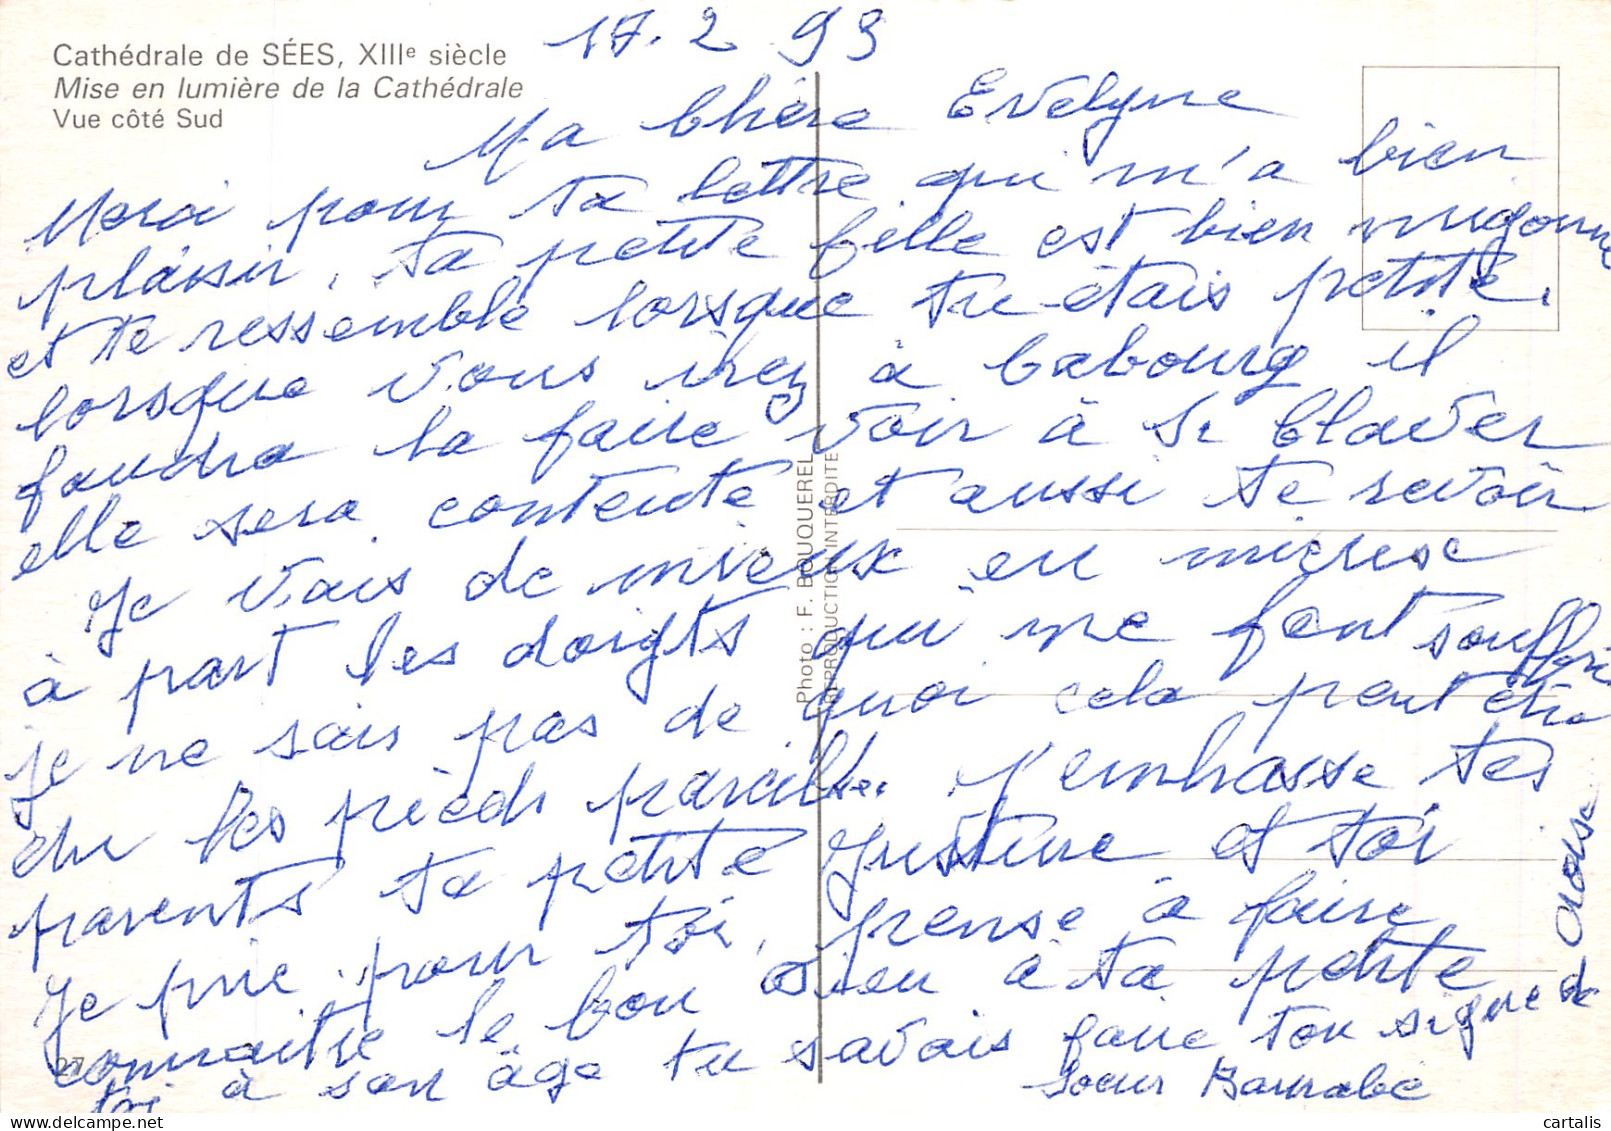 Cathédrale de SÉES, XIIIe siècle
Mise en lumière de la Cathédrale
Vue côté Sud
17.2 93
Ma chère Evelyne
Merci pour ta lettre qui m'a bien
plaisir, ta petite fille est bien mignonne
et te ressemble lorsque tu étais petite.
lorsque vous irez à Cabourg il
faudra la faire voir à Sr Claver
elle sera contente et aussi te revoir
Je vais de mieux en mieux
à part les doigts qui me font souffrir
je ne sais pas de quoi cela peut être
du les pieds pareille. j'embrasse tes
parents ta petite Justine et toi
Je prie pour toi, pense à faire
connaitre le bon Dieu à ta petite
toi à son âge tu savais faire ton signe de croix
Soeur Barnabé
Photo : F. BOUQUEREL
REPRODUCTION INTERDITE
27
cartalis